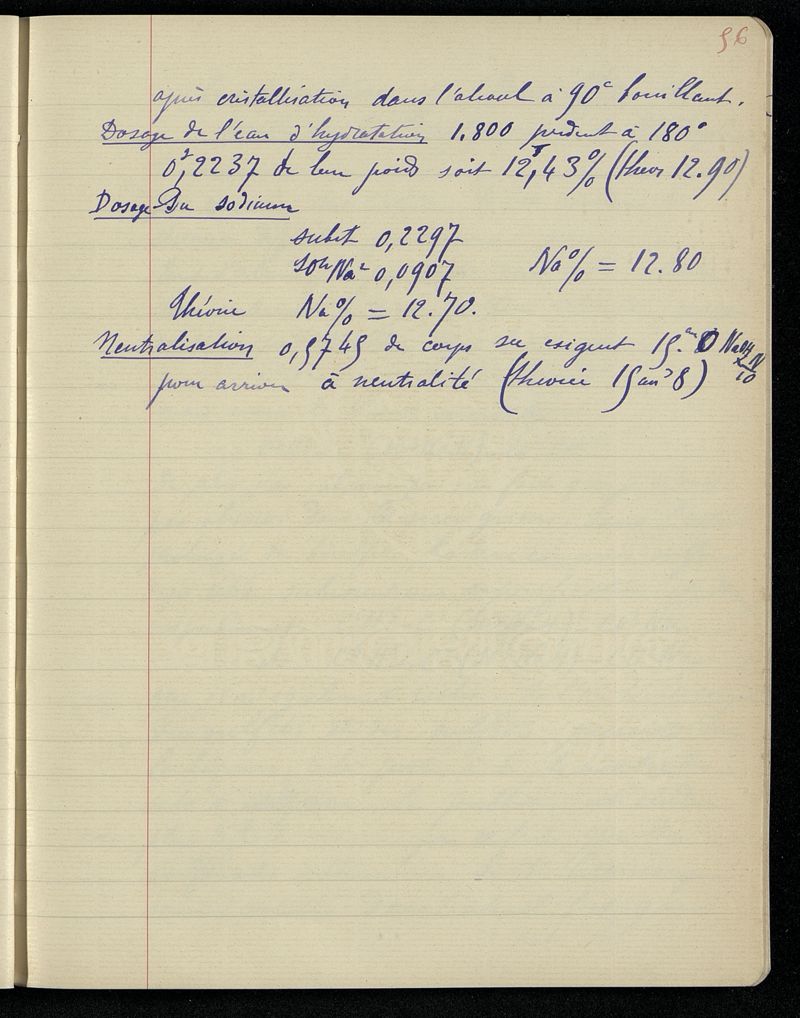 56
après cristallisation dans l'alcool à 90° bouillant.
Dosage de l'eau d'hydratation 1.800 perdent à 180°
0g,2237 de leur poids soit 12,43% (theor 12.90)
Dosage du sodium
subst 0,2297
SO4Na2 0,0907 Na% = 12.80
Théorie Na% = 12.70.
Neutralisation 0,5745 de corps sec exigent 15.cm3 0 NaOH N/10
pour arriver à neutralité (théorie 15cm3 8)